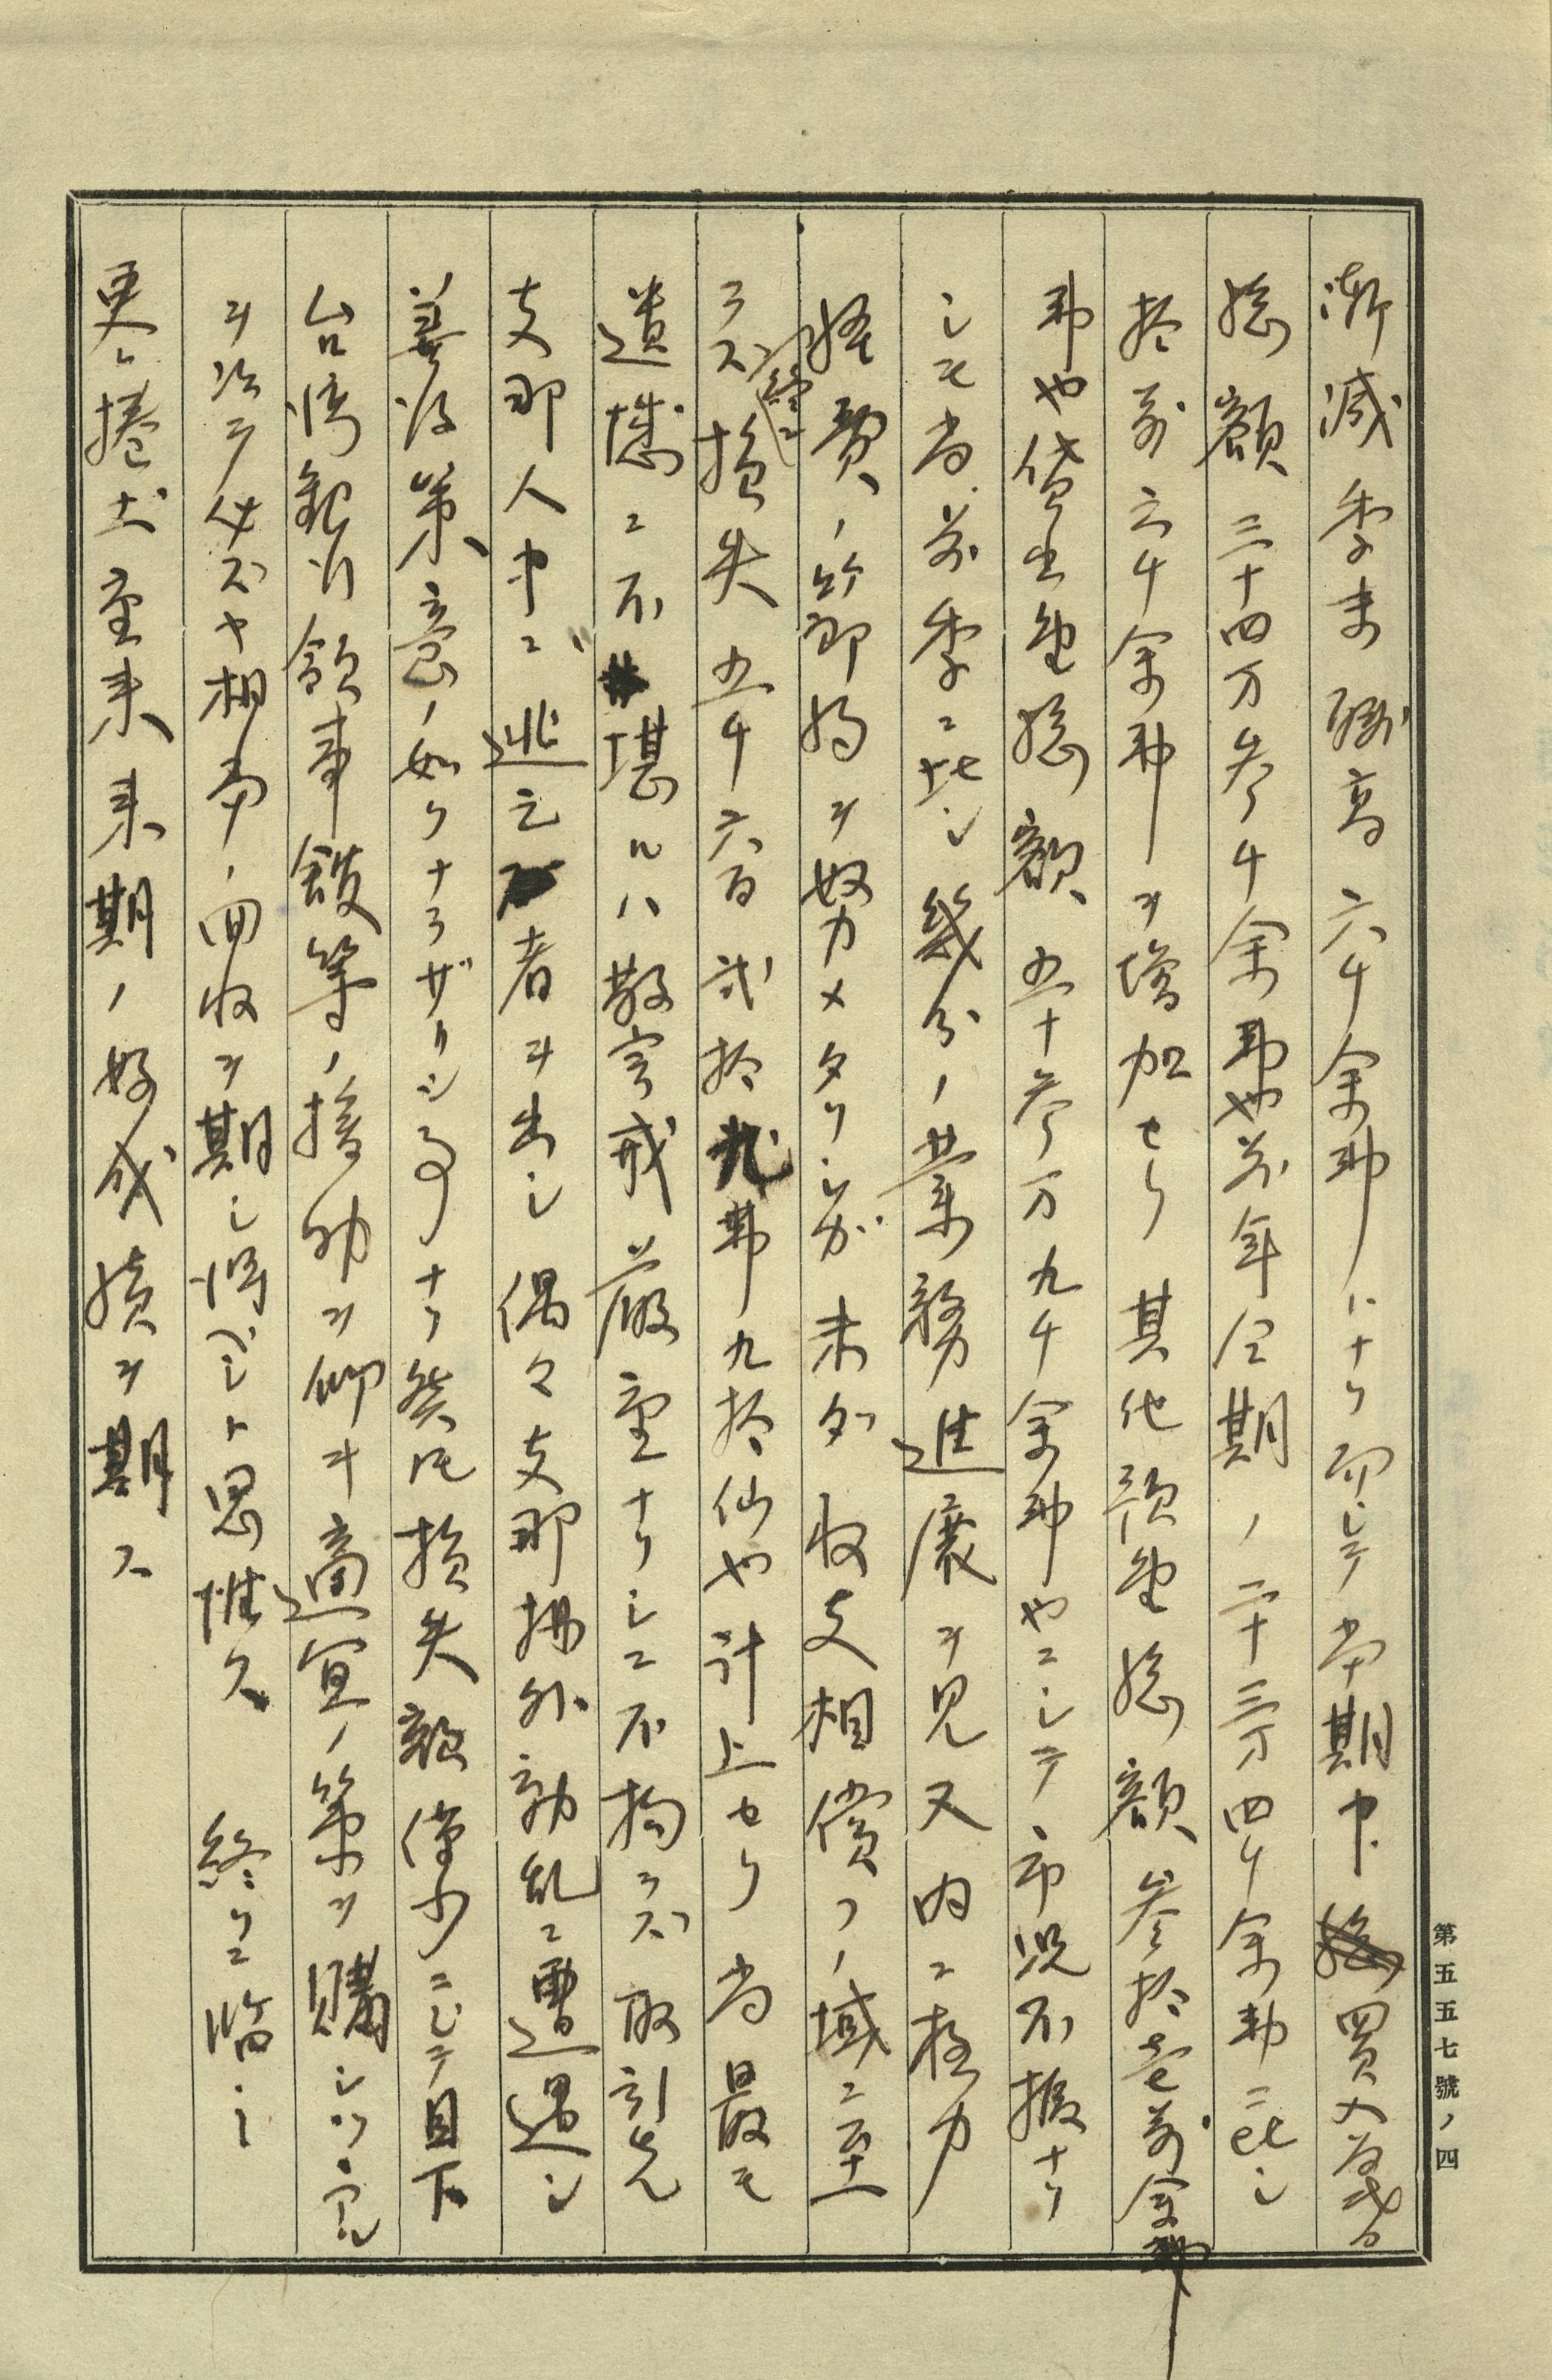 漸減季末残高六千余弗トナリ而シテ当期中買入為替
総額三十四万参千余弗也前年同期ノ二十三万四千余弗ニ比シ
拾万六千余弗ヲ増加セリ其他預金総額参拾壱万余弗
弗也貸出金総額五十参万九千余弗也ニシテ市況不振ナリ
シモ尚前季ニ比シ幾分ノ業務進展ヲ見又内ニ極力
経費ノ節約ヲ努カメタリシガ未ダ収支相償フノ域ニ至
ラズ損失五千六百弐拾弐弗九拾仙也計上セリ尚最モ
遺憾ニ不堪ルハ散宝戒厳重ナリシニ不拘ラズ取引先
支那人中ニ逃亡者ヲ出シ偶々支那排外動乱ニ遭遇シ
善後策意ノ如クナラザリシ事ナリ然レ共損失額僅少ニシテ目下
台湾銀行領事館等ノ援助ヲ仰ギ適宜ノ策ヲ購シツヽ
ヲ以テ必ズヤ相当ノ回収ヲ期シ得ベシト思惟ス 終リニ臨ミ
更ニ捲土重来来期ノ好成績ヲ期ス
第五五七號ノ四